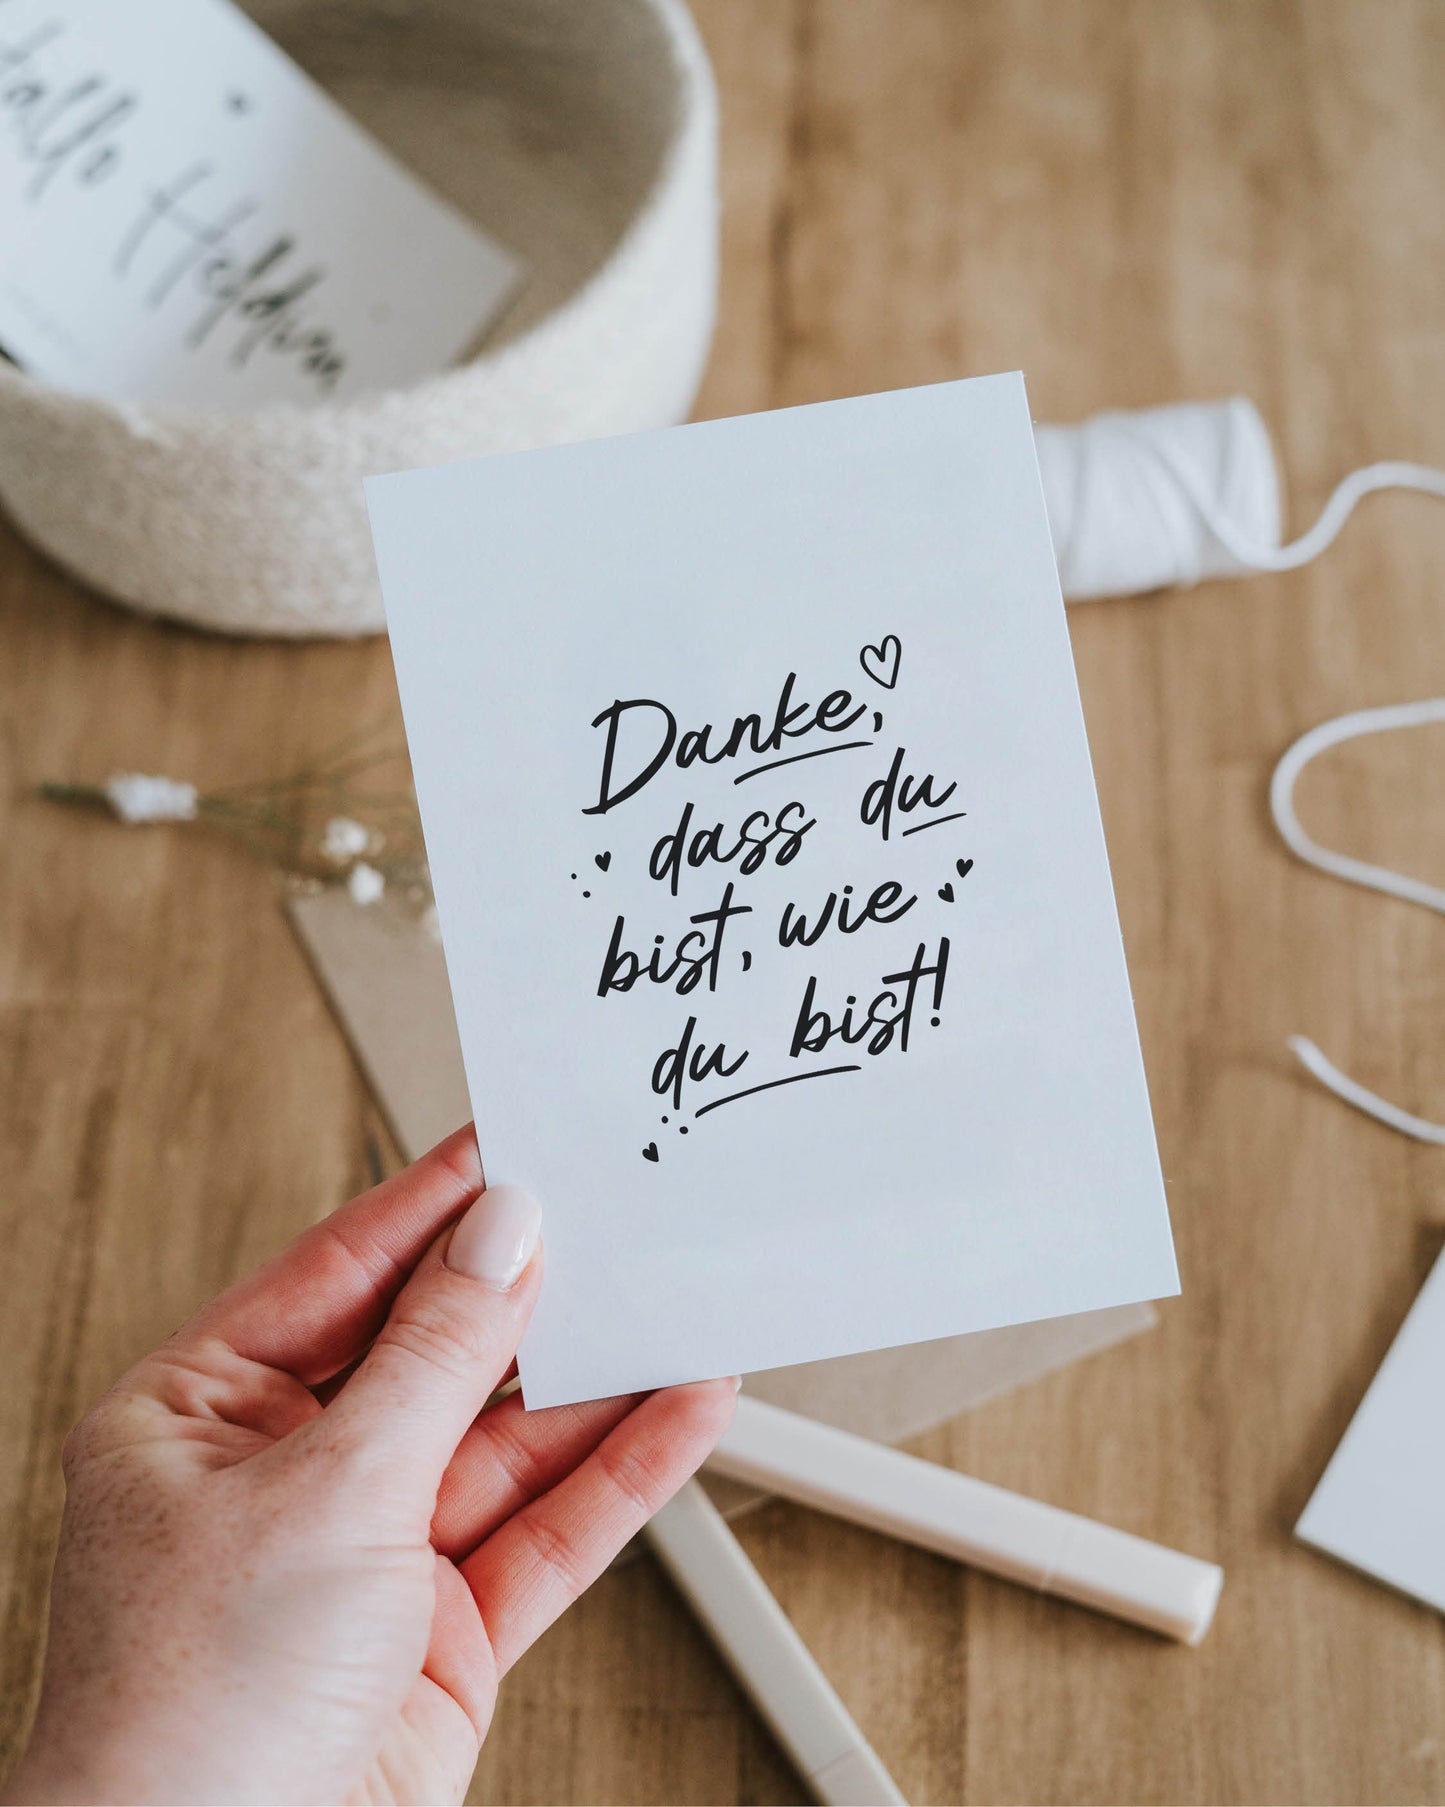 Hallo Heldin
Danke,
dass du
bist, wie
du bist!